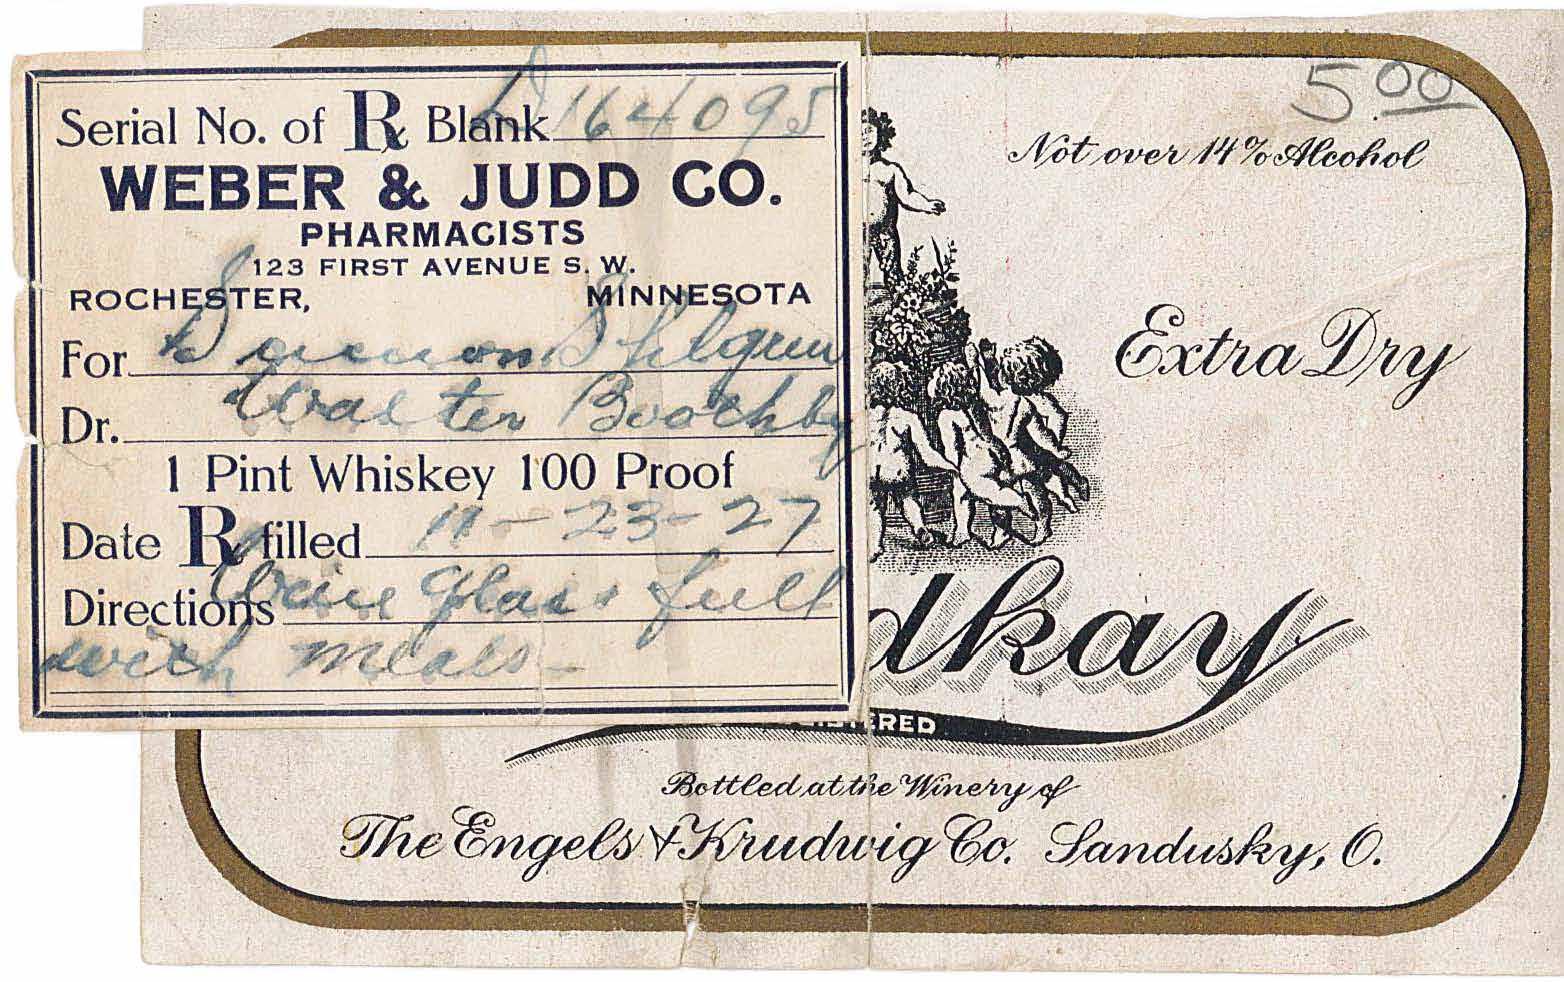 Serial No. of Rx Blank D164095
WEBER & JUDD CO.
PHARMACISTS
123 FIRST AVENUE S. W.
ROCHESTER, MINNESOTA
For
Dr. Walter Boothby
1 Pint Whiskey 100 Proof
Date Rx filled 11-23-27
Directions Wine Glass full
with meals-
5.00
Not over 14% Alcohol
Extra Dry
dkay
ERED
Bottled at the Winery of
The Engels & Krudwig Co. Sandusky, O.